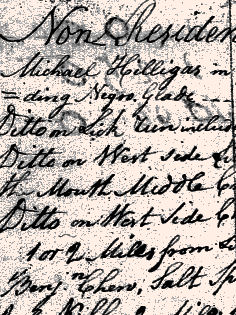 Non Residen
Michael Hilligas in
=ding Negro Glade
Ditto on Lick run inclus
Ditto on West side
the Mouth Middle C
Ditto on West side C
1 or 2 Miles from
Benj.n Chew, Salt Sp